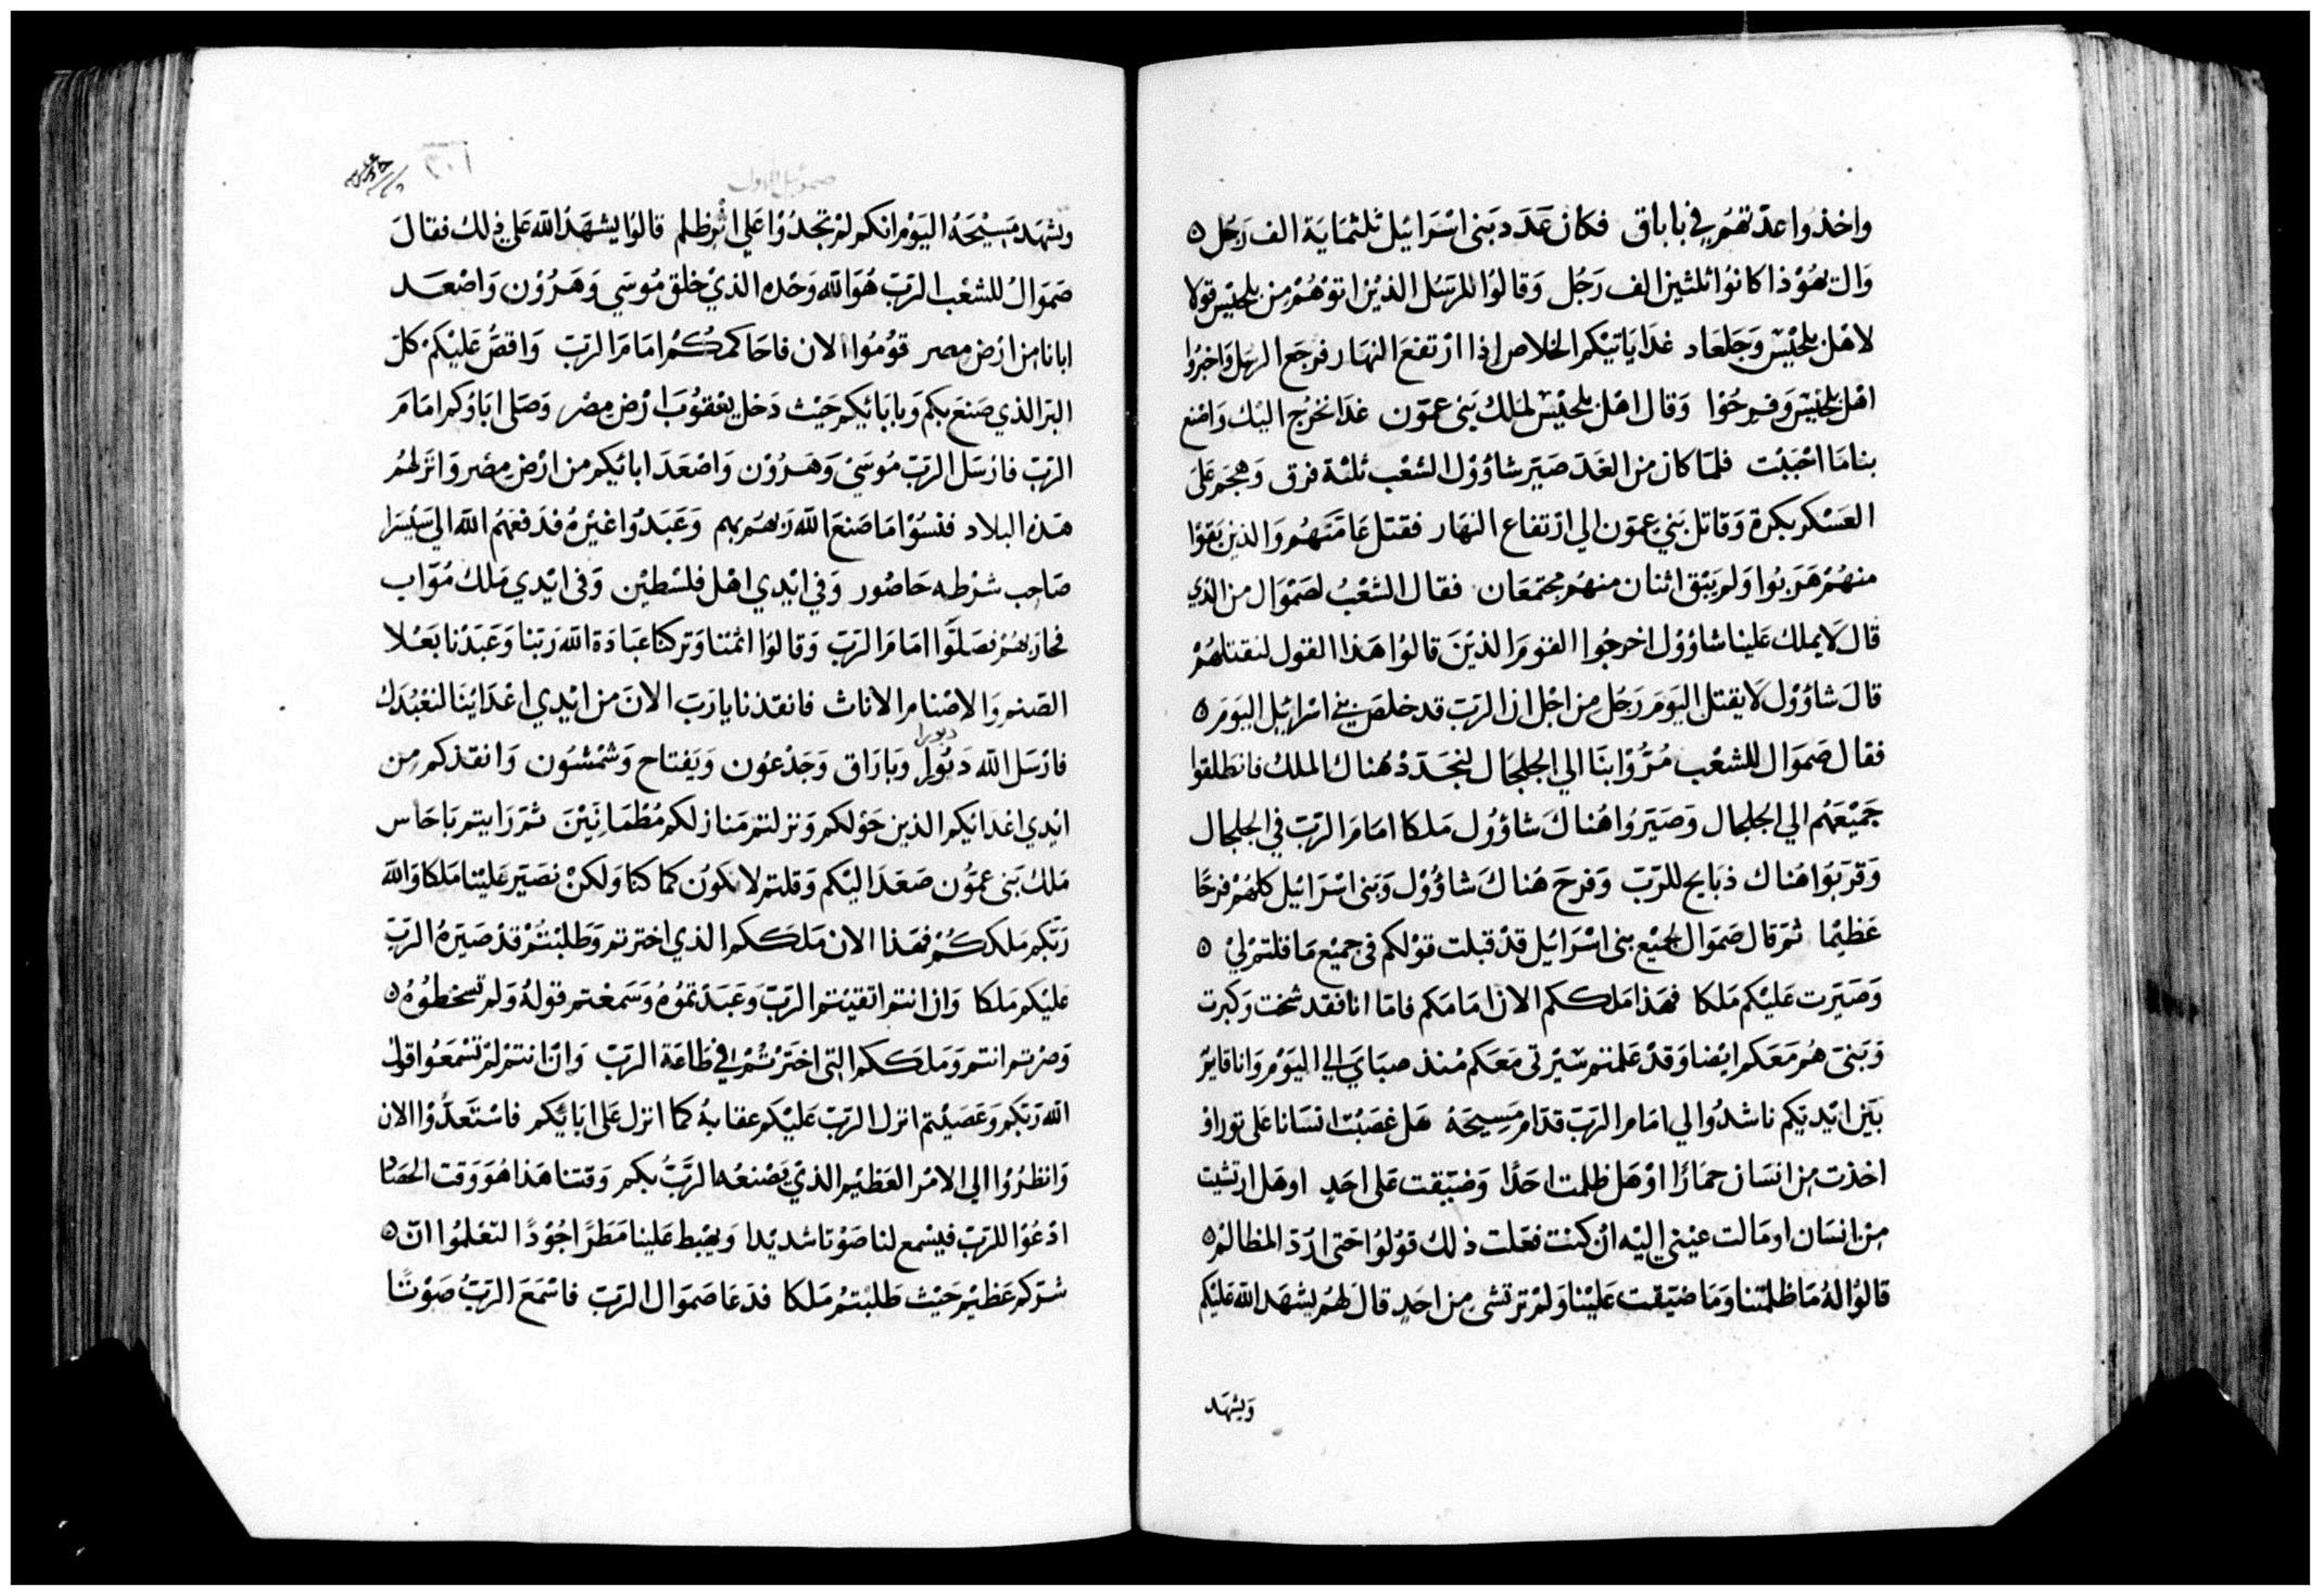 واخذوا عدتهم في باباق فكان عدد بني اسرائيل ثلثماية الف رجل ٥
وال يهوذا كانوا ثلثين الف رجل وقالوا للرسل الذين اتوهم من يلحيس قولا
لاهل يلحيس وجلعاد غدا ياتيكم الخلاص اذا ارتفع النهار فرجع الرسل واخبروا
اهل يلحيس وفرحوا وقال اهل يلحيس لملك بني عمون غدا نخرج اليك واصنع
بنا ما احببت فلما كان من الغد صير شاؤول الشعب ثلثة فرق وهجم على
العسكر بكرة وقاتل بني عمون الي ارتفاع النهار فقتل عامتهم والذين بقوا
منهم هربوا ولم يبق اثنان منهم مجتمعان فقال الشعب لصموال من الذي
قال لا يملك علينا شاؤول اخرجوا القوم الذين قالوا هذا القول لنقتلهم
قال شاؤول لا يقتل اليوم رجل من اجل ان الرب قد خلص بني اسرائيل اليوم ٥
فقال صموال للشعب مروا بنا الي الجلجال لنجدد هناك الملك فانطلقوا
جميعهم الي الجلجال وصيروا هناك شاؤول ملكا امام الرب في الجلجال
وقربوا هناك ذبايح للرب وفرح هناك شاؤول وبني اسرائيل كلهم فرحا
عظيما ثم قال صموال لجميع بني اسرائيل قد قبلت قولكم في جميع ما قلتم لي ٥
وصيرت عليكم ملكا فهذا ملككم الان امامكم فاما انا فقد شخت وكبرت
وبني هم معكم ايضا وقد علمتم سيرتي معكم منذ صباي الي اليوم وانا قايم
بين ايديكم ناشدوا لي امام الرب قدام مسيحه هل غصبت انسانا على ثور او
اخذت من انسان حمارا او هل ظلمت احدا وضيقت على احد او هل ارتشيت
من انسان او مالت عيني اليه ان كنت فعلت ذلك قولوا حتى ارد المظالم ٥
قالوا له ما ظلمتنا وما ضيقت علينا ولم ترتشي من احد قال لهم يشهد الله عليكم
ويشهد
صموئيل الاول
٣٠١
ويشهد مسيحه اليوم انكم لم تجدوا علي اثر ظلم قالوا يشهد الله على ذلك فقال
صموال للشعب الرب هو الله وحده الذي خلق موسي وهرون واصعد
ابانا من ارض مصر قوموا الان فاحاكمكم امام الرب واقص عليكم كل
البر الذي صنع بكم وبابائكم حيث دخل يعقوب ارض مصر وصلى اباؤكم امام
الرب فارسل الرب موسي وهرون واصعد ابائكم من ارض مصر وانزلهم
هذه البلاد فنسوا ما صنع الله ربهم بهم وعبدوا غيره فدفعهم الله الي سيسرا
صاحب شرطه حاصور وفي ايدي اهل فلسطين وفي ايدي ملك مواب
فحاربهم فصلوا امام الرب وقالوا اثمنا وتركنا عبادة الله ربنا وعبدنا بعلا
الصنم والاصنام الاناث فانقذنا يا رب الان من ايدي اعداينا لنعبدك
دبورا
فارسل الله دبورا وباراق وجدعون ويفتاح وشمشون وانقذكم من
ايدي اعدائكم الذين حولكم ونزلتم منازلكم مطمانيين ثم رايتم باحاس
ملك بني عمون صعد اليكم وقلتم لا نكون كما كنا ولكن نصير علينا ملكا والله
ربكم ملككم فهذا الان ملككم الذي اخترتم وطلبتم قد صيره الرب
عليكم ملكا وان انتم اتقيتم الرب وعبدتموه وسمعتم قوله ولم تسخطوه ٥
وصرتم انتم وملككم التي اخترتم في طاعة الرب وان انتم لم تسمعوا قول
الله ربكم وعصيتم انزل الرب عليكم عقابه كما انزل على ابائكم فاستعدوا الان
وانظروا الي الامر العظيم الذي يصنعه الرب بكم وقتنا هذا هو وقت الحصاد
ادعوا للرب فيسمع لنا صوتا شديدا ويهبط علينا مطرا جودا لتعلموا ان ٥
شركم عظيم حيث طلبتم ملكا فدعا صموال الرب فاسمع الرب صوتا